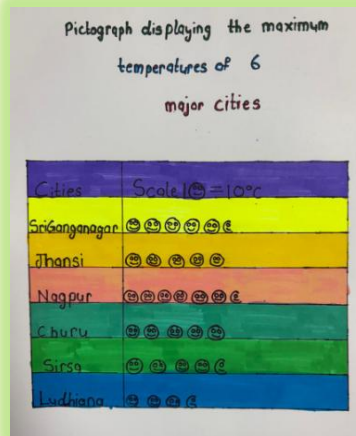 Pictograph displaying the maximum
temperatures of 6
major cities
Cities Scale 1 = 10°C
SriGanganagar
Jhansi
Nagpur
Churu
Sirsa
Ludhiana